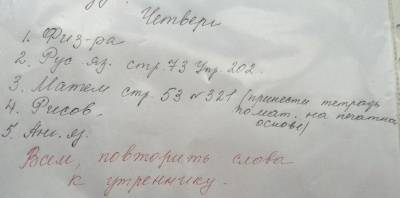 Четверг
1. Физ-ра
2. Рус яз. стр. 73 Упр. 202.
3. Матем стр. 53 № 321 (принести тетрадь
по мат. на печатной
основе)
4. Рисов.
5. Анг. яз.
Всем, повторить слова
к утреннику.